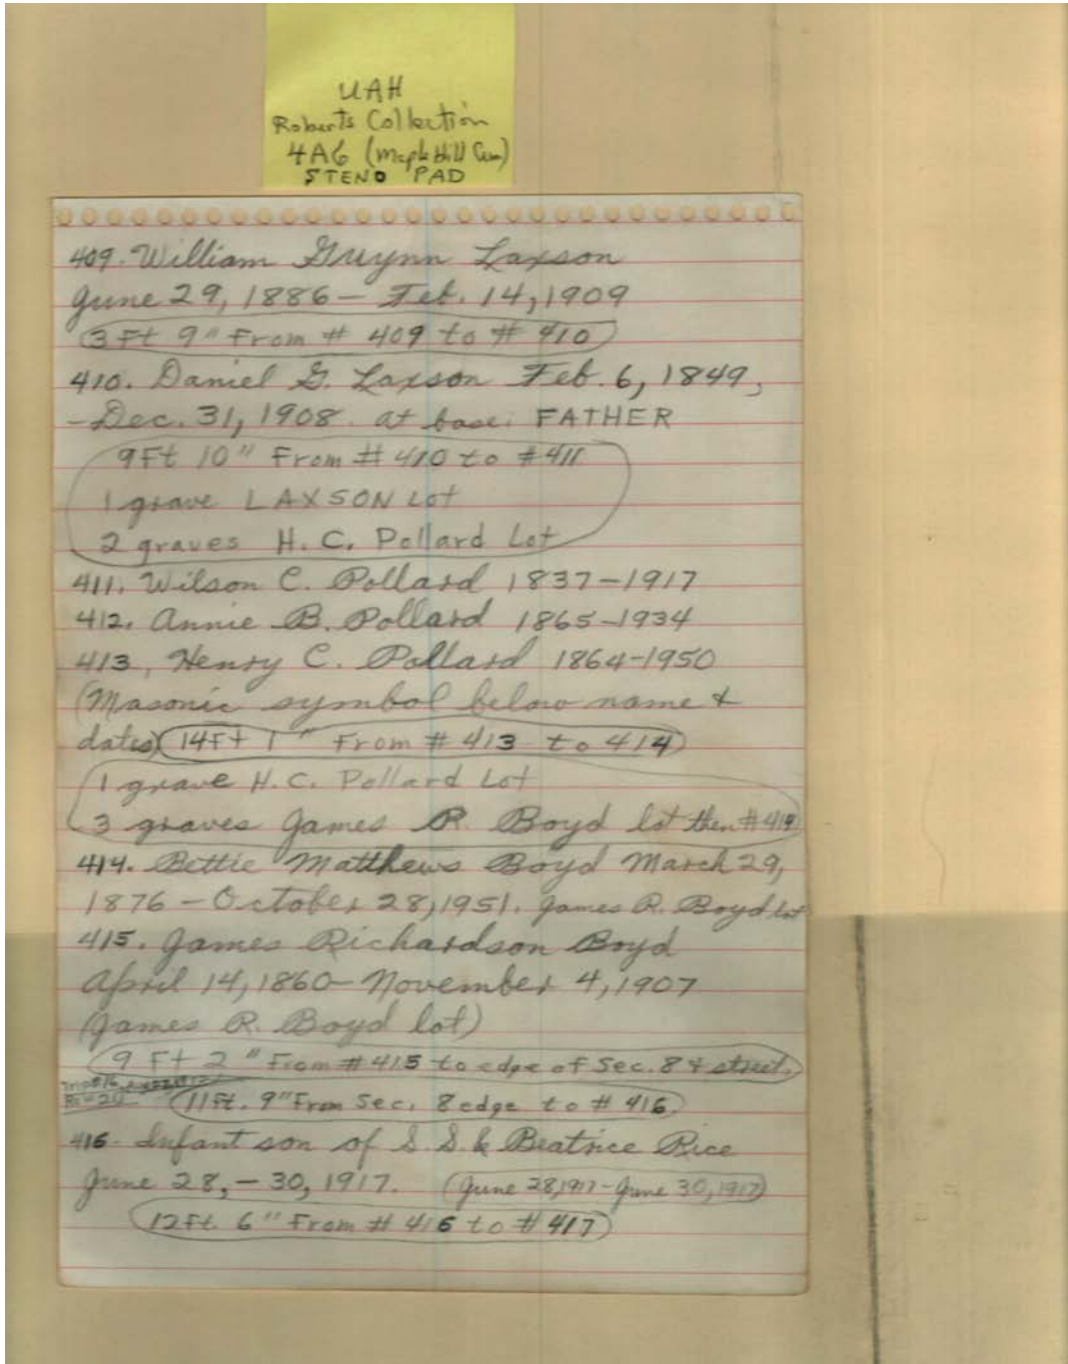 UAH
Roberts Collection
4A6 (Maple Hill Cem)
STENO PAD
409. William Gwynn Laxson
June 29, 1886 – Feb. 14, 1909
3 Ft 9" From # 409 to # 410
410. Daniel G. Laxson Feb. 6, 1849,
– Dec. 31, 1908. at base: FATHER
9Ft 10" From # 410 to #411
1 grave LAXSON Lot
2 graves H. C. Pollard Lot
411. Wilson C. Pollard 1837–1917
412. Annie B. Pollard 1865–1934
413, Henry C. Pollard 1864–1950
(Masonic symbol below name &
dates) 14Ft 1" From # 413 to 414
1 grave H. C. Pollard Lot
3 graves James R. Boyd lot then #414
414. Bettie Matthews Boyd March 29,
1876 – October 28, 1951. James R. Boyd lot
415. James Richardson Boyd
April 14, 1860 – November 4, 1907
(James R. Boyd lot)
9 Ft 2" From # 415 to edge of Sec. 8 & street.
Trip #16,
11Ft. 9" From Sec. 8 edge to # 416
416. Infant son of S. S. & Beatrice Rice
June 28, – 30, 1917. (June 28, 1917 – June 30, 1917)
12Ft. 6" From # 416 to # 417